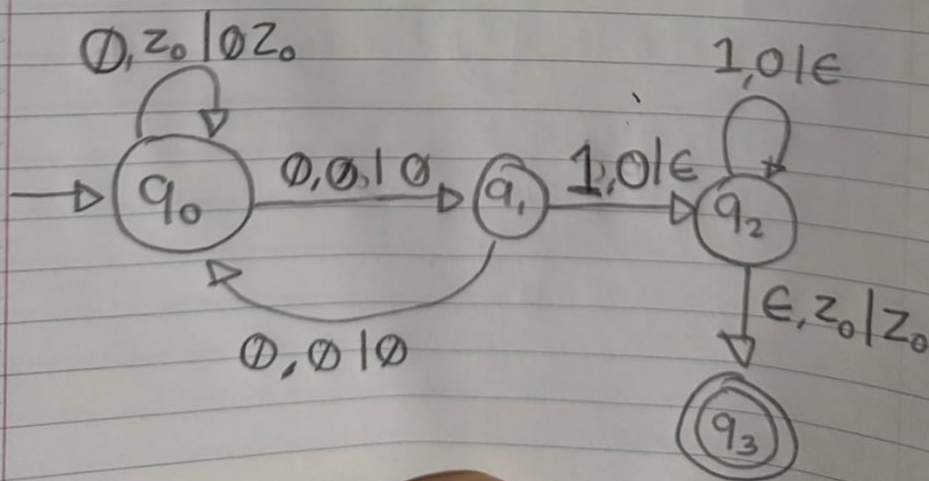 0,z₀|0z₀
1,0|ϵ
q₀
0,0,|0
q₁
1,0|ϵ
q₂
0,0|0
ϵ,z₀|z₀
q₃